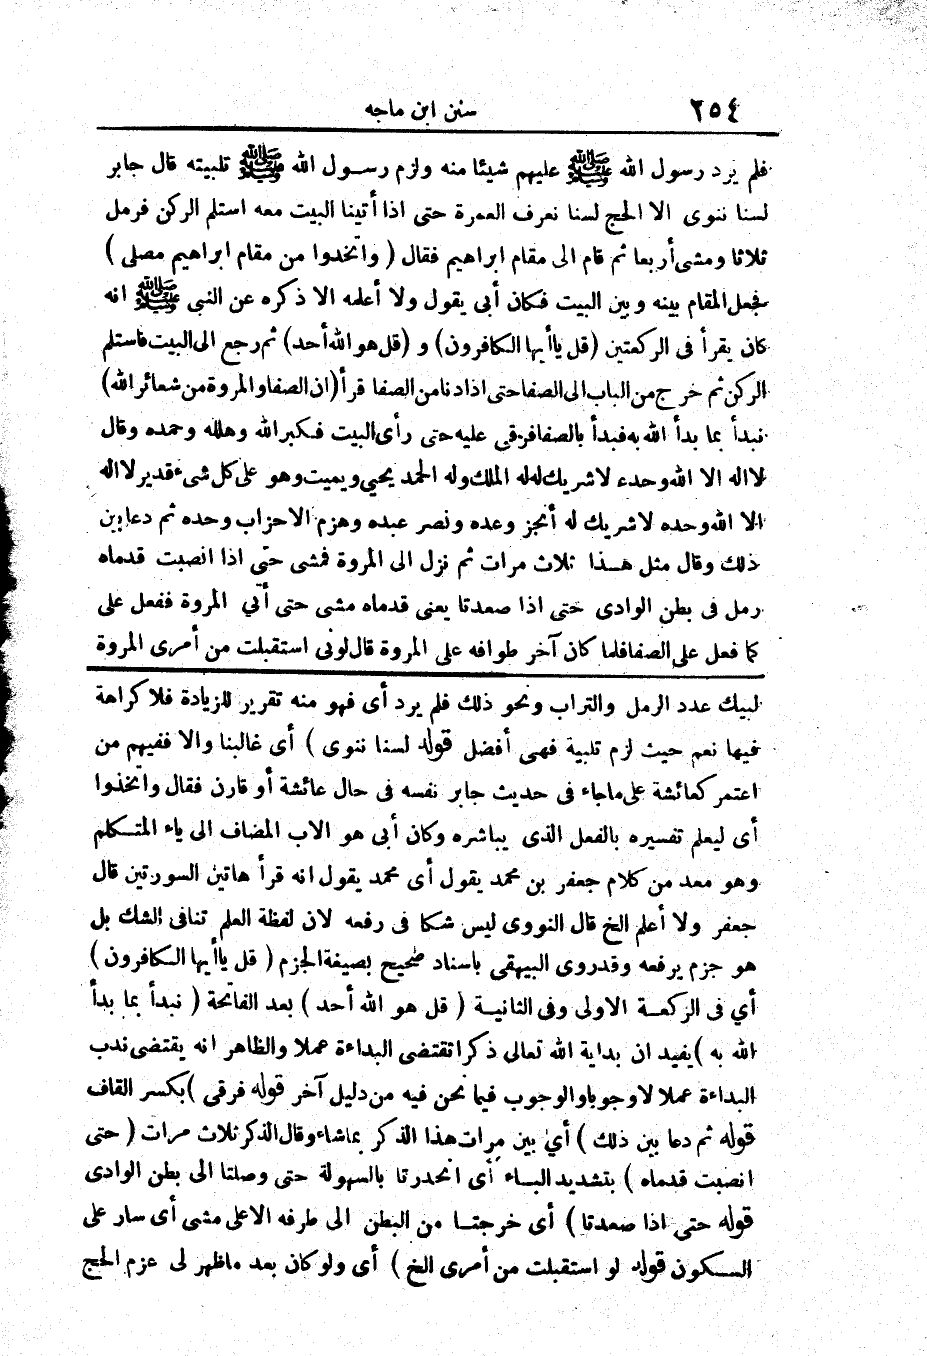 ٢٥٤ سنن ابن ماجه
فلم يرد رسول الله ﷺ عليهم شيئا منه ولزم رسول الله ﷺ تلبيته قال جابر
لسنا ننوى الا الحج لسنا نعرف العمرة حتى اذا أتينا البيت معه استلم الركن فرمل
ثلاثا ومشى أربعا ثم قام الى مقام ابراهيم فقال ( واتخذوا من مقام ابراهيم مصلى )
فجعل المقام بينه وبين البيت فكان أبى يقول ولا أعلمه الا ذكره عن النبى ﷺ انه
كان يقرأ فى الركعتين (قل ياأيها الكافرون) و (قل هو الله أحد) ثم رجع الى البيت فاستلم
الركن ثم خرج من الباب الى الصفا حتى اذا دنا من الصفا قرأ (ان الصفا والمروة من شعائر الله)
نبدأ بما بدأ الله به فبدأ بالصفا فرقى عليه حتى رأى البيت فكبر الله وهلله وحمده وقال
لا اله الا الله وحده لا شريك له له الملك وله الحمد يحيي ويميت وهو على كل شىء قدير لا اله
الا الله وحده لا شريك له أنجز وعده ونصر عبده وهزم الاحزاب وحده ثم دعا بين
ذلك وقال مثل هذا ثلاث مرات ثم نزل الى المروة فمشى حتى اذا انصبت قدماه
رمل فى بطن الوادى حتى اذا صعدتا يعنى قدماه مشى حتى أتي المروة ففعل على
كما فعل على الصفا فلما كان آخر طوافه على المروة قال لونى استقبلت من أمرى المروة
لبيك عدد الرمل والتراب ونحو ذلك فلم يرد أى فهو منه تقرير للزيادة فلا كراهة
فيها نعم حيث لزم تلبية فهى أفضل قوله لسنا ننوى ) أى غالبنا والا ففيهم من
اعتمر كعائشة على ماجاء فى حديث جابر نفسه فى حال عائشة أو قارن فقال واتخذوا
أى ليعلم تفسيره بالفعل الذى يباشره وكان أبى هو الاب المضاف الى ياء المتكلم
وهو معد من كلام جعفر بن محمد يقول أى محمد يقول انه قرأ هاتين السورتين قال
جعفر ولا أعلم الخ قال النووى ليس شكا فى رفعه لان لفظة العلم تنافى الشك بل
هو جزم يرفعه وقدروى البيهقى باسناد صحيح بصيغة الجزم ( قل ياأيها الكافرون )
أي فى الركعة الاولى وفى الثانية ( قل هو الله أحد ) بعد الفاتحة ( نبدأ بما بدأ
الله به ) يفيد ان بداية الله تعالى ذكرا تقتضى البداءة عملا والظاهر انه يقتضى ندب
البداءة عملا لا وجوبا والوجوب فيما نحن فيه من دليل آخر قوله فرقى ) بكسر القاف
قوله ثم دعا بين ذلك ) أي بين مرات هذا الذكر بماشاء وقال الذكر ثلاث مرات ( حتى
انصبت قدماه ) بتشديد الباء أى انحدرتا بالسهولة حتى وصلتا الى بطن الوادى
قوله حتى اذا صعدتا ) أى خرجتا من البطن الى طرفه الاعلى مشى أى سار على
السكون قوله لو استقبلت من أمرى الخ ) أى ولو كان بعد ماظهر لى عزم الحج